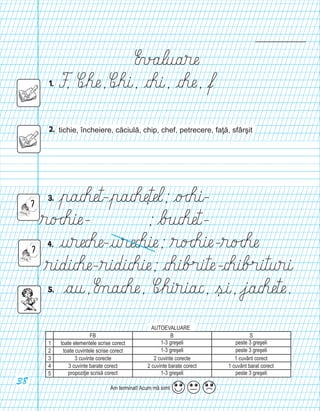 Evaluare
1. F, Che, Chi, chi, che, f
2. tichie, încheiere, căciulă, chip, chef, petrecere, faţă, sfârşit
3. pachet-pacheţel; ochi-
rochie- ; buchet-
4. ureche-urechie; rochie-roche
ridiche-ridichie; chibrite-chibrituri
5. au, Enache, Chiriac, şi, jachete.
AUTOEVALUARE
FB B S
1 toate elementele scrise corect 1-3 greşeli peste 3 greşeli
2 toate cuvintele scrise corect 1-3 greşeli peste 3 greşeli
3 3 cuvinte corecte 2 cuvinte corecte 1 cuvânt corect
4 3 cuvinte barate corect 2 cuvinte barate corect 1 cuvânt barat corect
5 propoziţie scrisă corect 1-3 greşeli peste 3 greşeli
Am terminat! Acum mă simt
38